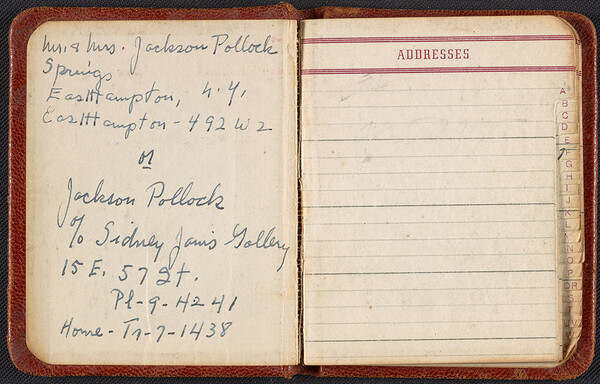 Mr. & Mrs. Jackson Pollock
Springs
EastHampton, N.Y.
EastHampton - 492 W 2
or
Jackson Pollock
c/o Sidney Janis Gallery
15 E. 57 St.
Pl-9-4241
Home - Tr-7-1438
ADDRESSES
A
B
C
D
E
F
G
H
I
J
K
L
N
O
P